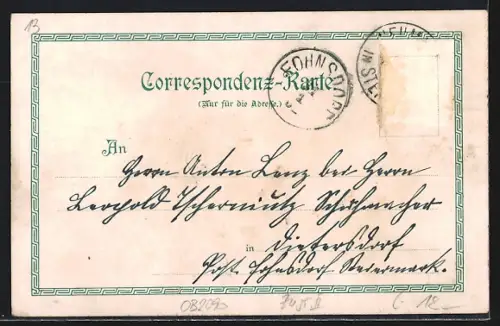 13
Correspondenz-Karte
(Nur für die Adresse.)
FOHNSDORF
An
Herrn Anton Lenz bei Herrn
Leopold Tscherniutz Schuhmacher
in Dietersdorf
Post Fohnsdorf Steiermark.
18